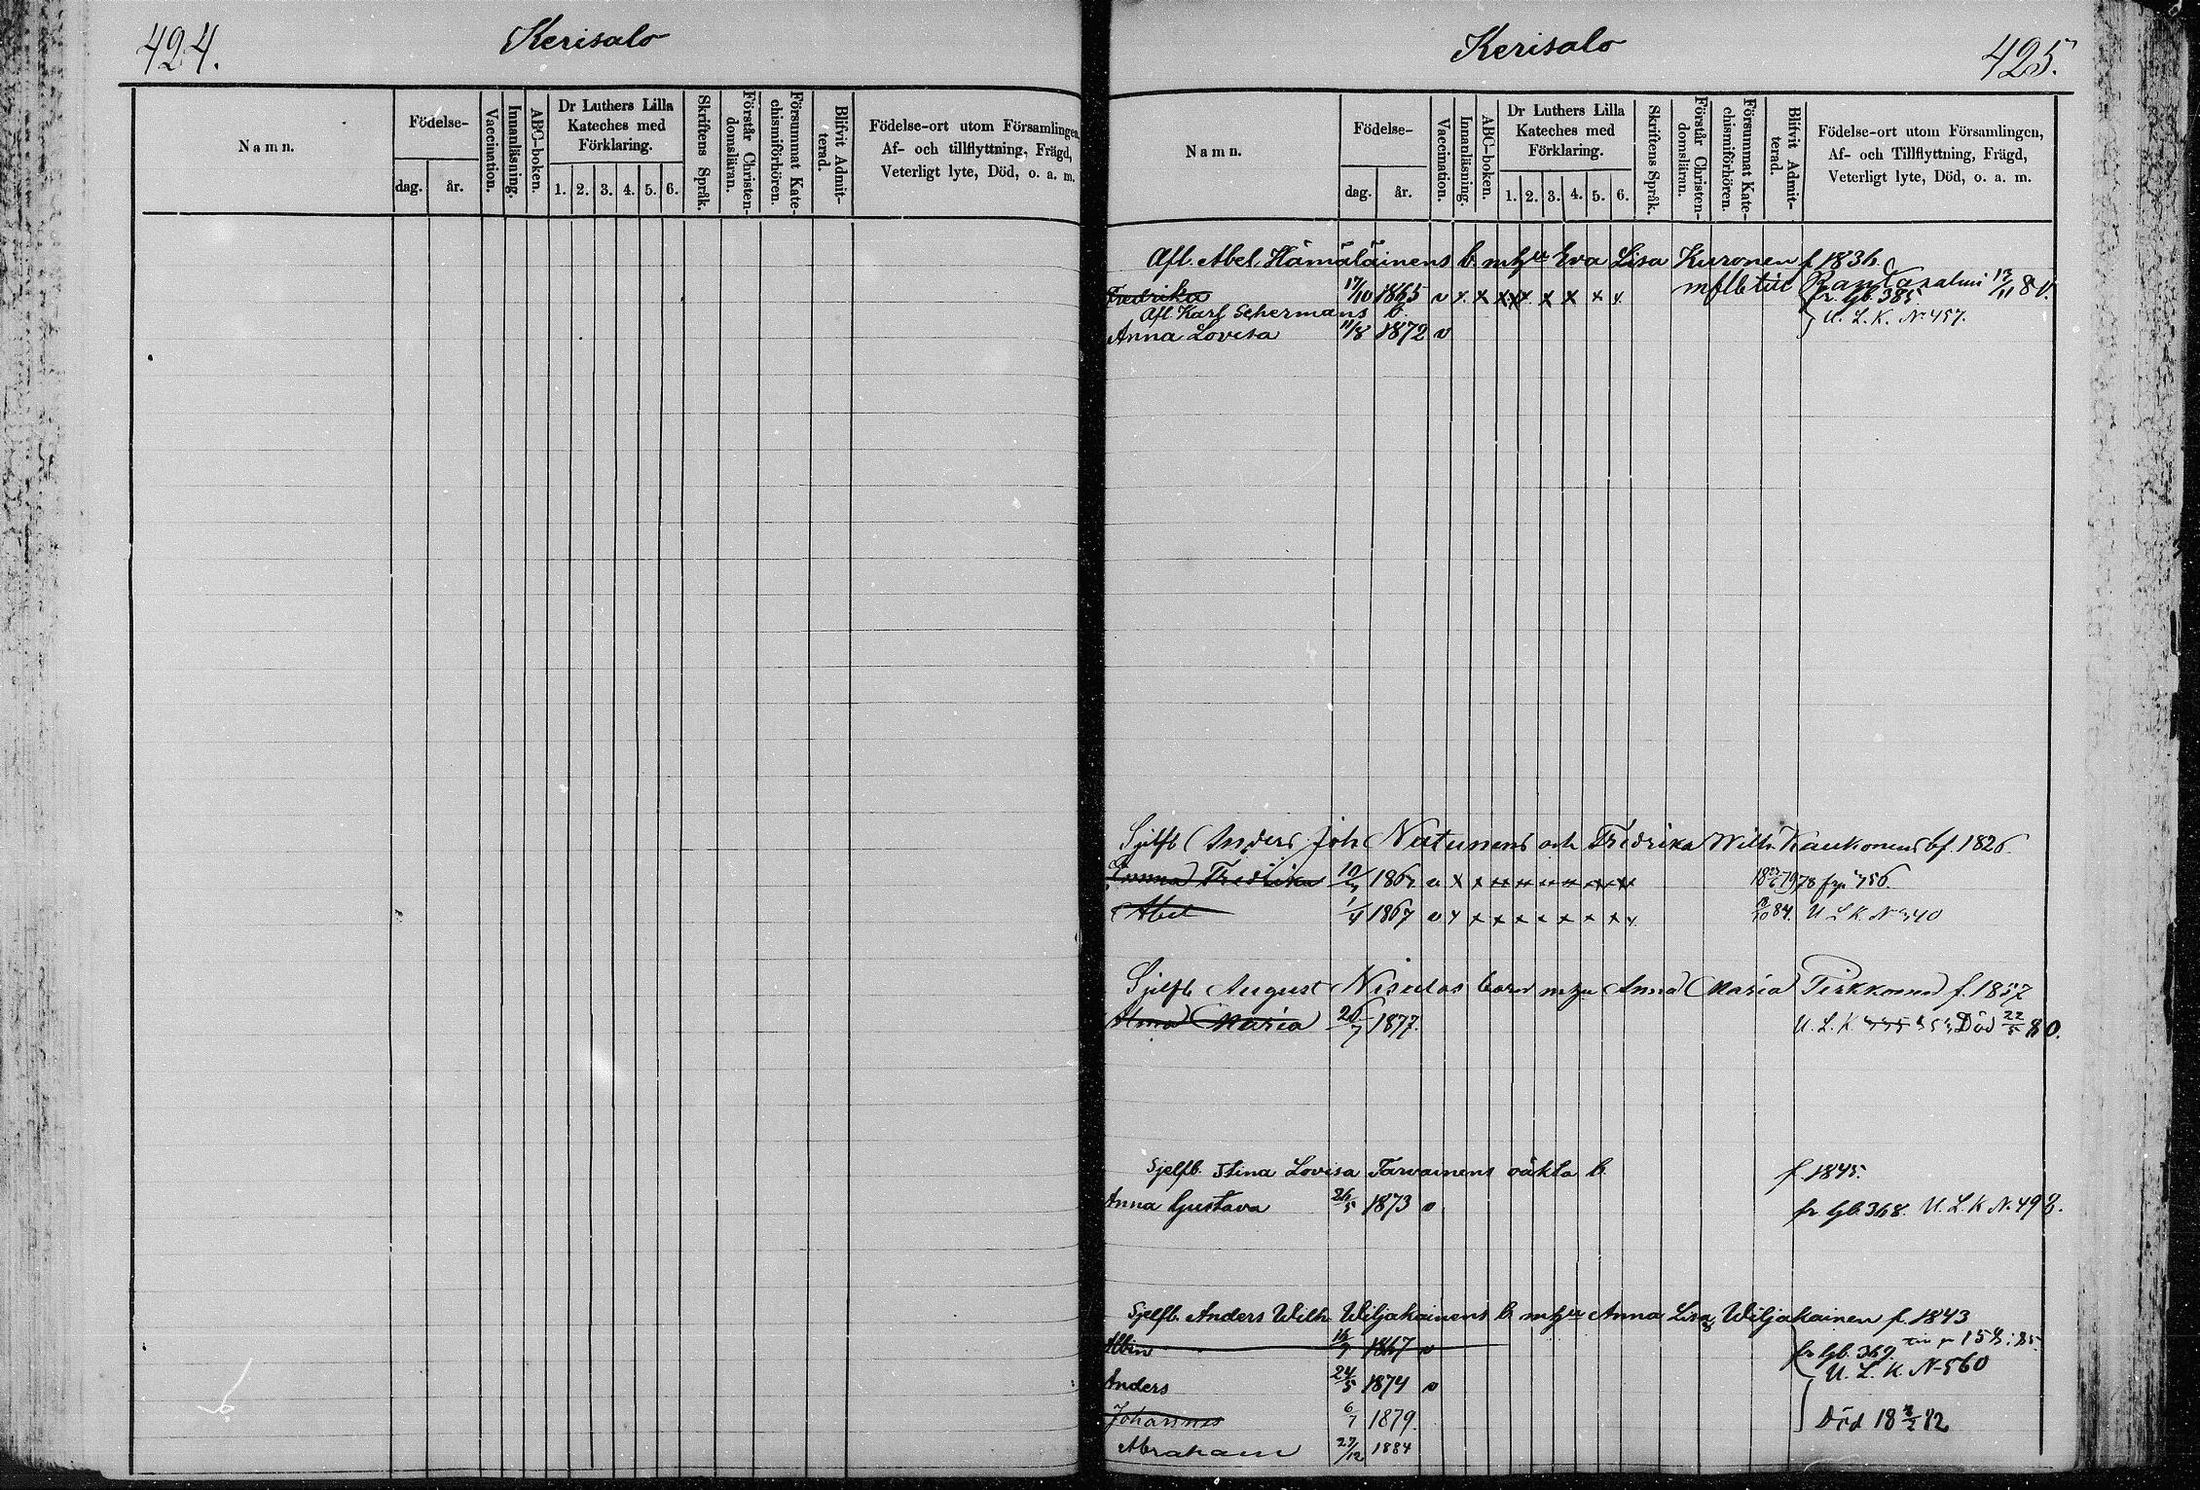 424.
Kerisalo
Namn.
Födelse-
dag. år.
Vaccination.
Innanläsning.
ABC-boken.
Dr Luthers Lilla
Kateches med
Förklaring.
1. 2. 3. 4. 5. 6.
Skriftens Språk.
Förstår Christen-
domsläran.
Försummat Kate-
chismiförhören.
Blifvit Admit-
terad.
Födelse-ort utom Församlingen,
Af- och tillflyttning, Frägd,
Veterligt lyte, Död, o. a. m.
Kerisalo
425.
Namn.
Födelse-
dag. år.
Vaccination.
Innanläsning.
ABC-boken.
Dr Luthers Lilla
Kateches med
Förklaring.
1. 2. 3. 4. 5. 6.
Skriftens Språk.
Förstår Christen-
domsläran.
Försummat Kate-
chismiförhören.
Blifvit Admit-
terad.
Födelse-ort utom Församlingen,
Af- och Tillflyttning, Frägd,
Veterligt lyte, Död, o. a. m.
Afl. Abel Hämäläinens b. Eva Lisa Kuronen f. 1836.
Fredrika 17/10 1865 v x x x x x x x x Rantasalmi
fr. gb. 385.
Afl. Karl Schermans b.
U. L. K. N. 457.
Anna Lovisa 11/8 1872 v
Sjelfb Anders Joh Natunens och Fredrika Wilh. Kaukonens b f. 1826.
Fredrika 1867 v x x x x x x x x
Abel 1/4 1867 v x x x x x x x x 84. U. L. K. N
Sjelfb August barn Anna Maria Pirkkonen f. 1857
Maria 26/7 1877. U. L. K. Död 22/5 80.
Sjelfb. Stina Lovisa Tarvainens oäkta b. f. 1845.
Anna Gustava 26/5 1873 v fr gb. 368. U. L. K N. 498.
Sjelfb. Anders Wilh. Wiljakainens b. Anna Lisa Wiljakainen f. 1843
Albin 1867 v fr gb. 369
U. L. K. N-560
Anders 24/5 1874 v
Johannes 6/7 1879. Död 18 82
Abraham 27/12 1884